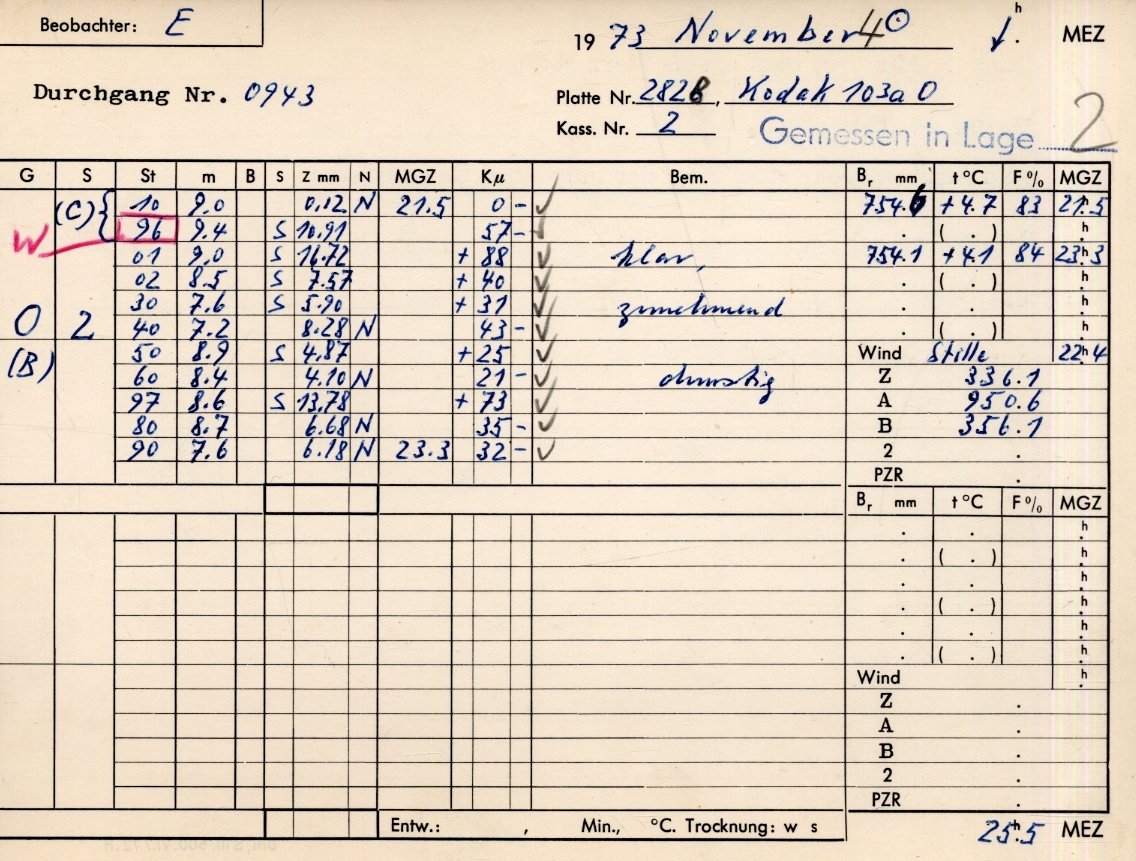 Beobachter: E
19 73 November 4 ⊙ h . MEZ
Durchgang Nr. 0943
Platte Nr. 2828, Kodak 103a O
Kass. Nr. 2
Gemessen in Lage 2
G S St m B S Z mm N MGZ Kμ Bem. Br mm t °C F % MGZ
(C) { 10 9.0 0.12 N 21.5 0 - ✓ 754.6 +4.7 83 21.5
W 96 9.4 S 10.91 57 - ✓ . ( . ) h
01 9.0 S 16.72 + 88 ✓ klar, 754.1 +4.1 84 23h3
02 8.5 S 7.57 + 40 ✓ . ( . ) h
30 7.6 S 5.90 + 31 ✓ zunehmend . . h
O 2 40 7.2 8.28 N 43 - ✓ . ( . ) h
(B) 50 8.9 S 4.87 + 25 ✓ Wind Stille 22h4
60 8.4 4.10 N 21 - ✓ dunstig Z 336.1
97 8.6 S 13.78 + 73 ✓ A 950.6
80 8.7 6.68 N 35 - ✓ B 356.1
90 7.6 6.18 N 23.3 32 - ✓ 2 .
PZR .
Br mm t °C F % MGZ
. . h
. ( . ) h
. . h
. ( . ) h
. . h
. ( . ) h
Wind h
Z .
A .
B .
2 .
PZR .
Entw.: , Min., °C. Trocknung: w s
25h5 MEZ